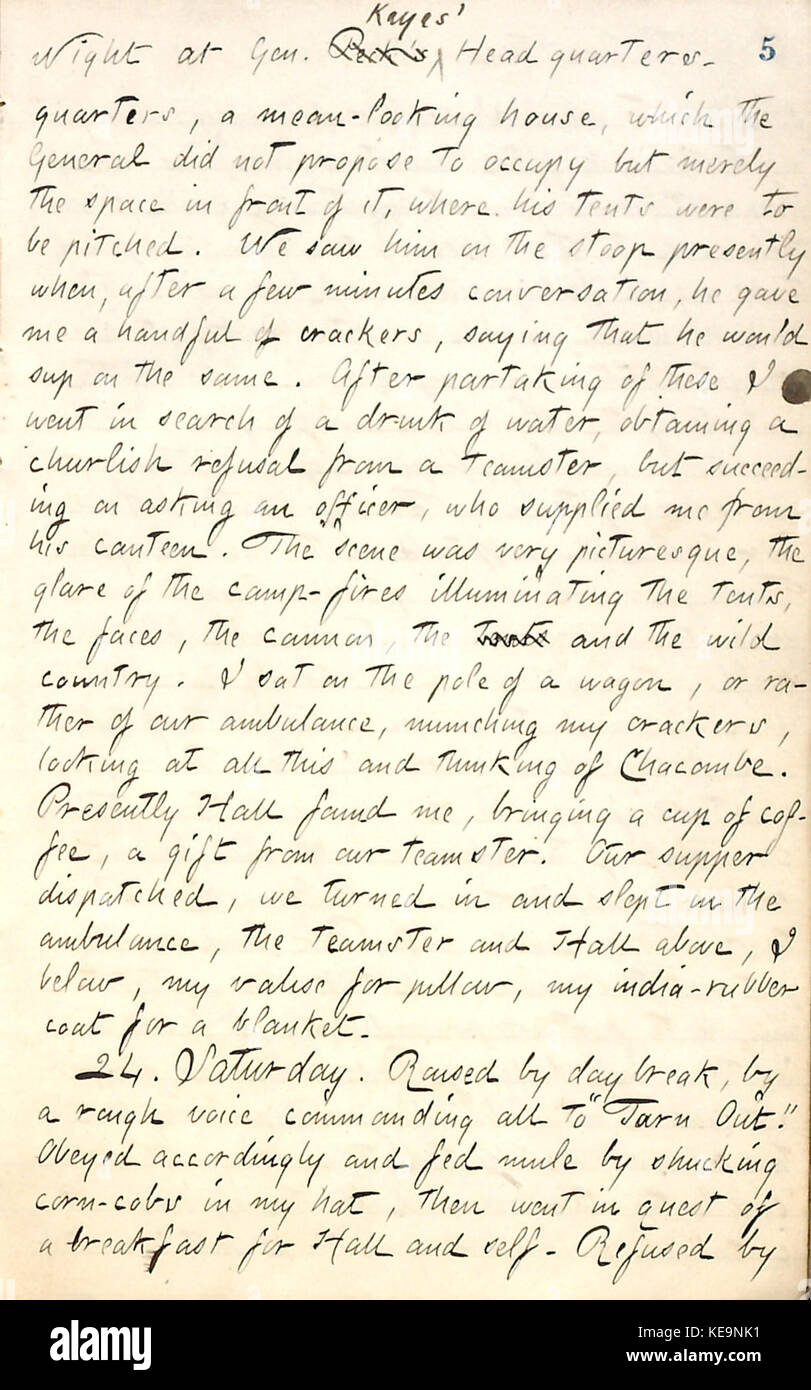 Keyes'
Night at Gen. Peck's Head quarters- 5
quarters, a mean-looking house, which the
General did not propose to occupy but merely
the space in front of it, where his tents were to
be pitched. We saw him on the stoop presently
when, after a few minutes conversation, he gave
me a handful of crackers, saying that he would
sup on the same. After partaking of these I
went in search of a drink of water, obtaining a
churlish refusal from a teamster, but succeed-
ing on asking an officer, who supplied me from
his canteen. The scene was very picturesque, the
glare of the camp-fires illuminating the tents,
the faces, the cannon, the tents and the wild
country. I sat on the pole of a wagon, or ra-
ther of our ambulance, munching my crackers,
looking at all this and thinking of Chacombe.
Presently Hall found me, bringing a cup of cof-
fee, a gift from our teamster. Our supper
dispatched, we turned in and slept in the
ambulance, the teamster and Hall above, I
below, my valise for pillow, my india-rubber
coat for a blanket.
24. Saturday. Roused by daybreak, by
a rough voice commanding all to "Turn Out!"
Obeyed accordingly and fed mule by shucking
corn-cobs in my hat, then went in quest of
a breakfast for Hall and self- Refused by
alamy
Image ID: KE9NK1
www.alamy.com